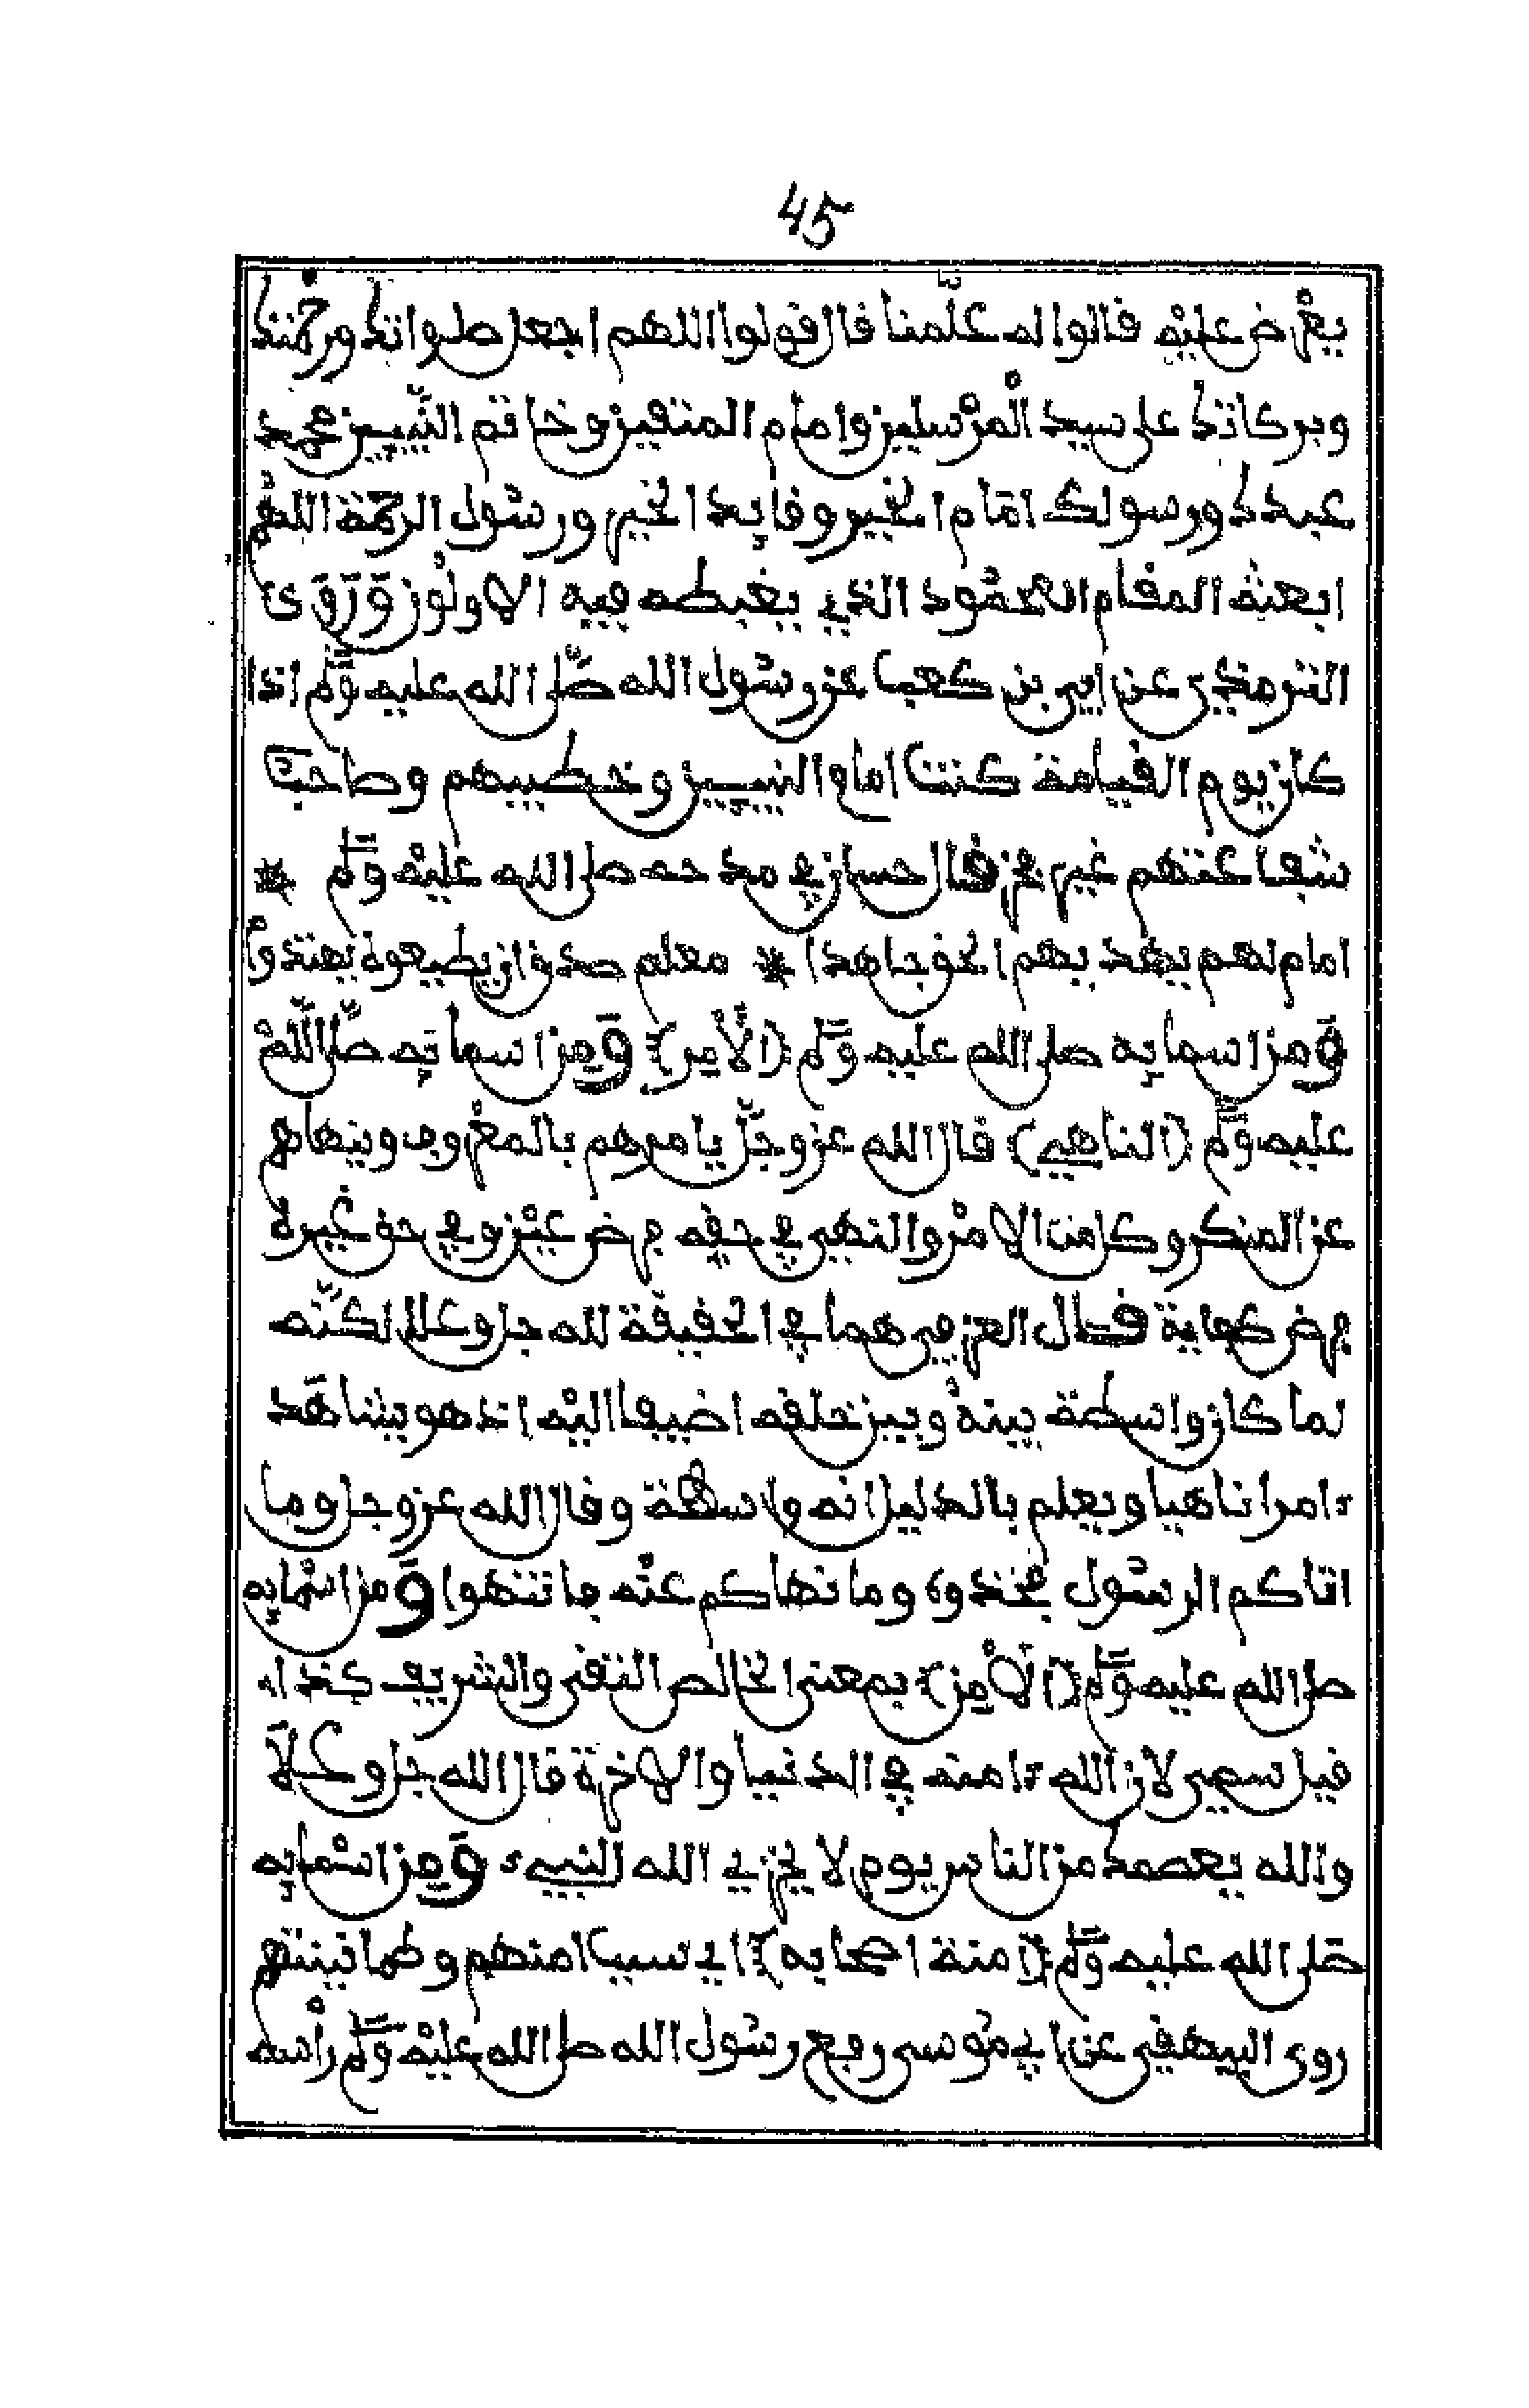 45
يعرض عليه قالوا له علّمنا قال قولوا اللهم اجعل صلواتك ورحمتك
وبركاتك على سيد المرسلين وامام المتقين وخاتم النبيين محمد
عبدك ورسولك امام الخير وقايد الخير ورسول الرحمة اللهم
ابعثه المقام المحمود الذي يغبطه فيه الاولون وروى
الترمذي عن ابي بن كعب عن رسول الله صلى الله عليه وسلم اذا
كان يوم القيامة كنت امام النبيين وخطيبهم وصاحب
شفاعتهم غير فخر قال حسان في مدحه صلى الله عليه وسلم *
امام لهم يهديهم الحق جاهدا * معلم صدق ان يطيعوه يهتدوا
ومن اسمايه صلى الله عليه وسلم (الآمر) ومن اسمايه صلى الله
عليه وسلم (الناهي) قال الله عز وجل يامرهم بالمعروف وينهاهم
عن المنكر وكان الامر والنهي في حقه فرض عين وفي حق غيره
فرض كفاية قال العزفي هما في الحقيقة لله جل وعلا لكنه
لما كان واسطة بينه وبين خلقه اضيفا اليه اذ هو يشاهد
ءامرا ناهيا ويعلم بالدليل انه واسطة وقال الله عز وجل وما
اتاكم الرسول فخذوه وما نهاكم عنه فانتهوا ومن اسمايه
صلى الله عليه وسلم (الآمن) بمعنى الخالص التقي والشريف كذا
قيل سمي لان الله ءامنه في الدنيا والاخرة قال الله جل وعلا
والله يعصمك من الناس يوم لا يخزي الله النبيء ومن اسمايه
صلى الله عليه وسلم (امنة اصحابه) اي سبب امنهم وطمانينتهم
روى البيهقي عن ابي موسى رفع رسول الله صلى الله عليه وسلم رأسه